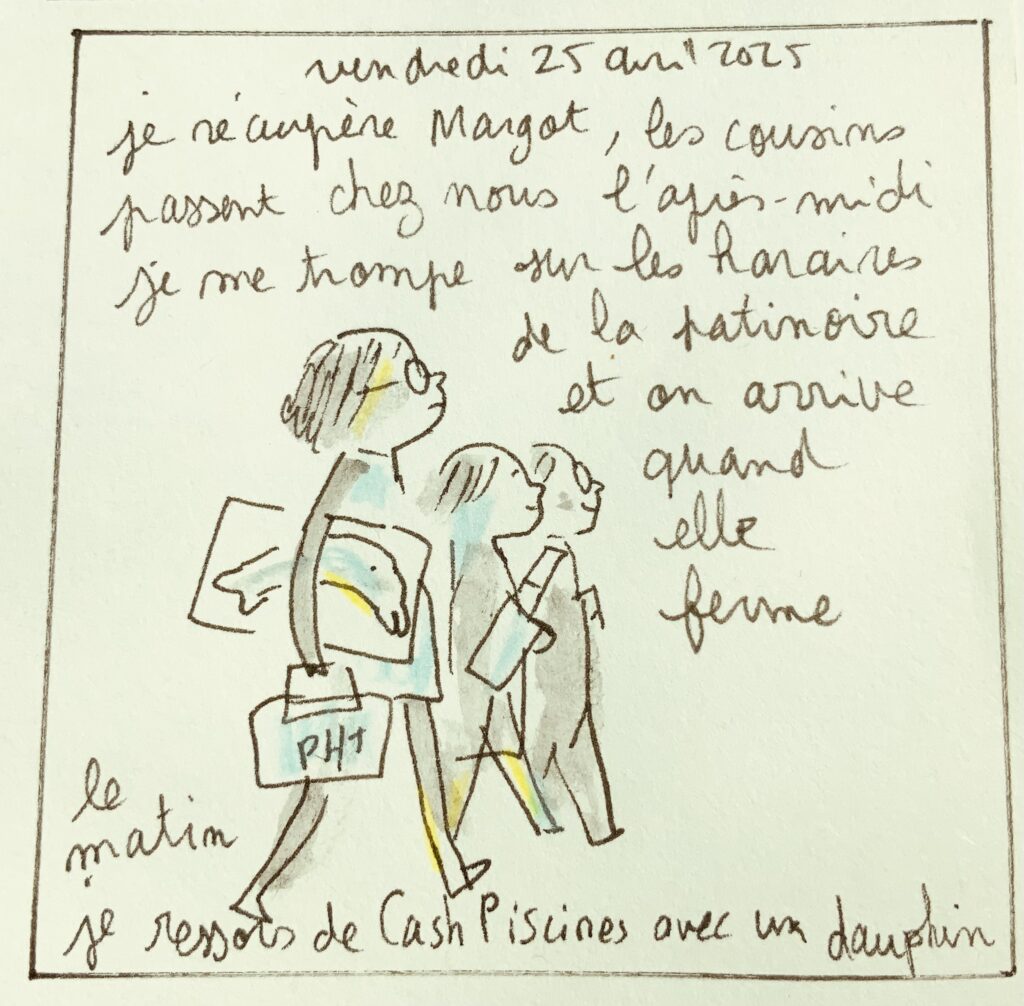 vendredi 25 avril 2025
je récupère Margot, les cousins
passent chez nous l'après-midi
je me trompe sur les horaires
de la patinoire
et on arrive
quand
elle
ferme
PH+
le
matin
je ressors de Cash Piscines avec un dauphin